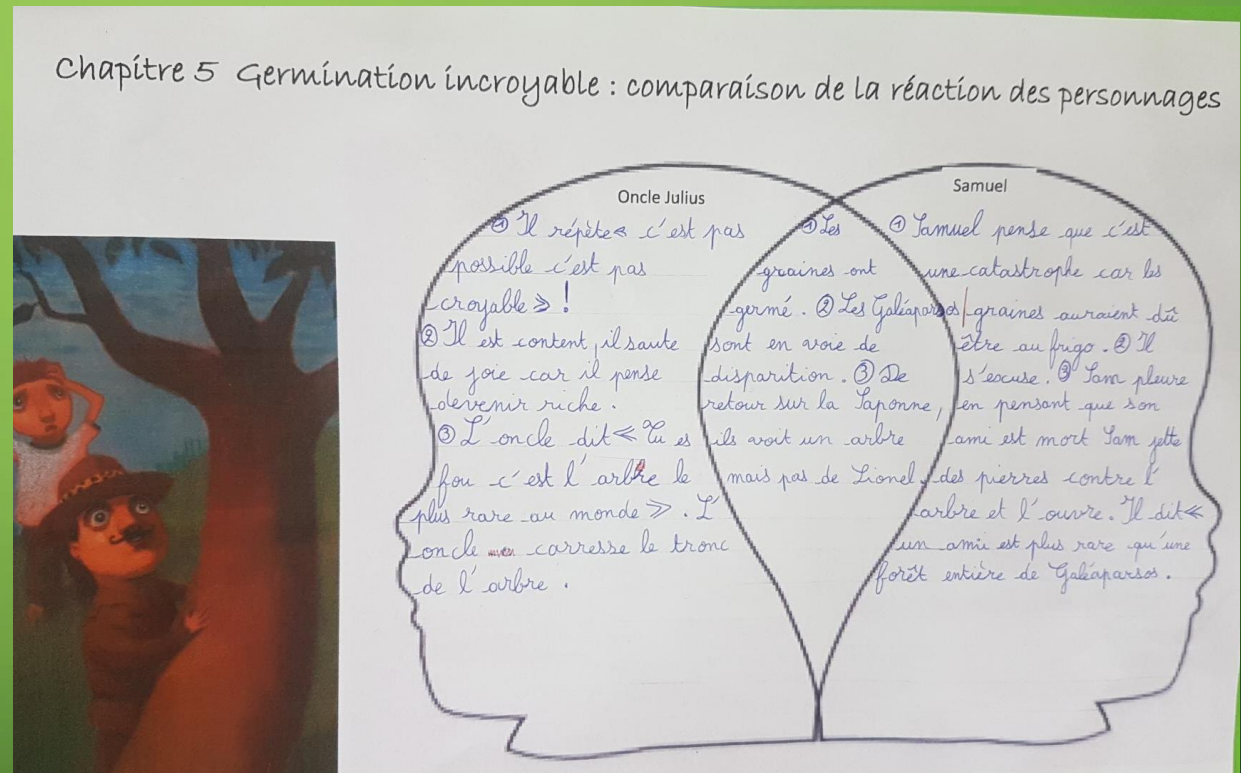 Chapitre 5 Germination incroyable : comparaison de la réaction des personnages
Oncle Julius
① Il répète « c'est pas
possible c'est pas
croyable » !
② Il est content, il saute
de joie car il pense
devenir riche .
③ L'oncle dit « Tu es
fou c'est l'arbre le
plus rare au monde » . L'
oncle carresse le tronc
de l'arbre .
① Les
graines ont
germé . ② Les Galéaparsos
sont en voie de
disparition . ③ De
retour sur la Saponne,
ils voit un arbre
mais pas de Lionel.
Samuel
① Samuel pense que c'est
une catastrophe car les
graines auraient dû
être au frigo . ② Il
s'excuse . ③ Sam pleure
en pensant que son
ami est mort Sam jette
des pierres contre l'
arbre et l'ouvre. Il dit «
un ami est plus rare qu'une
forêt entière de Galéaparsos .